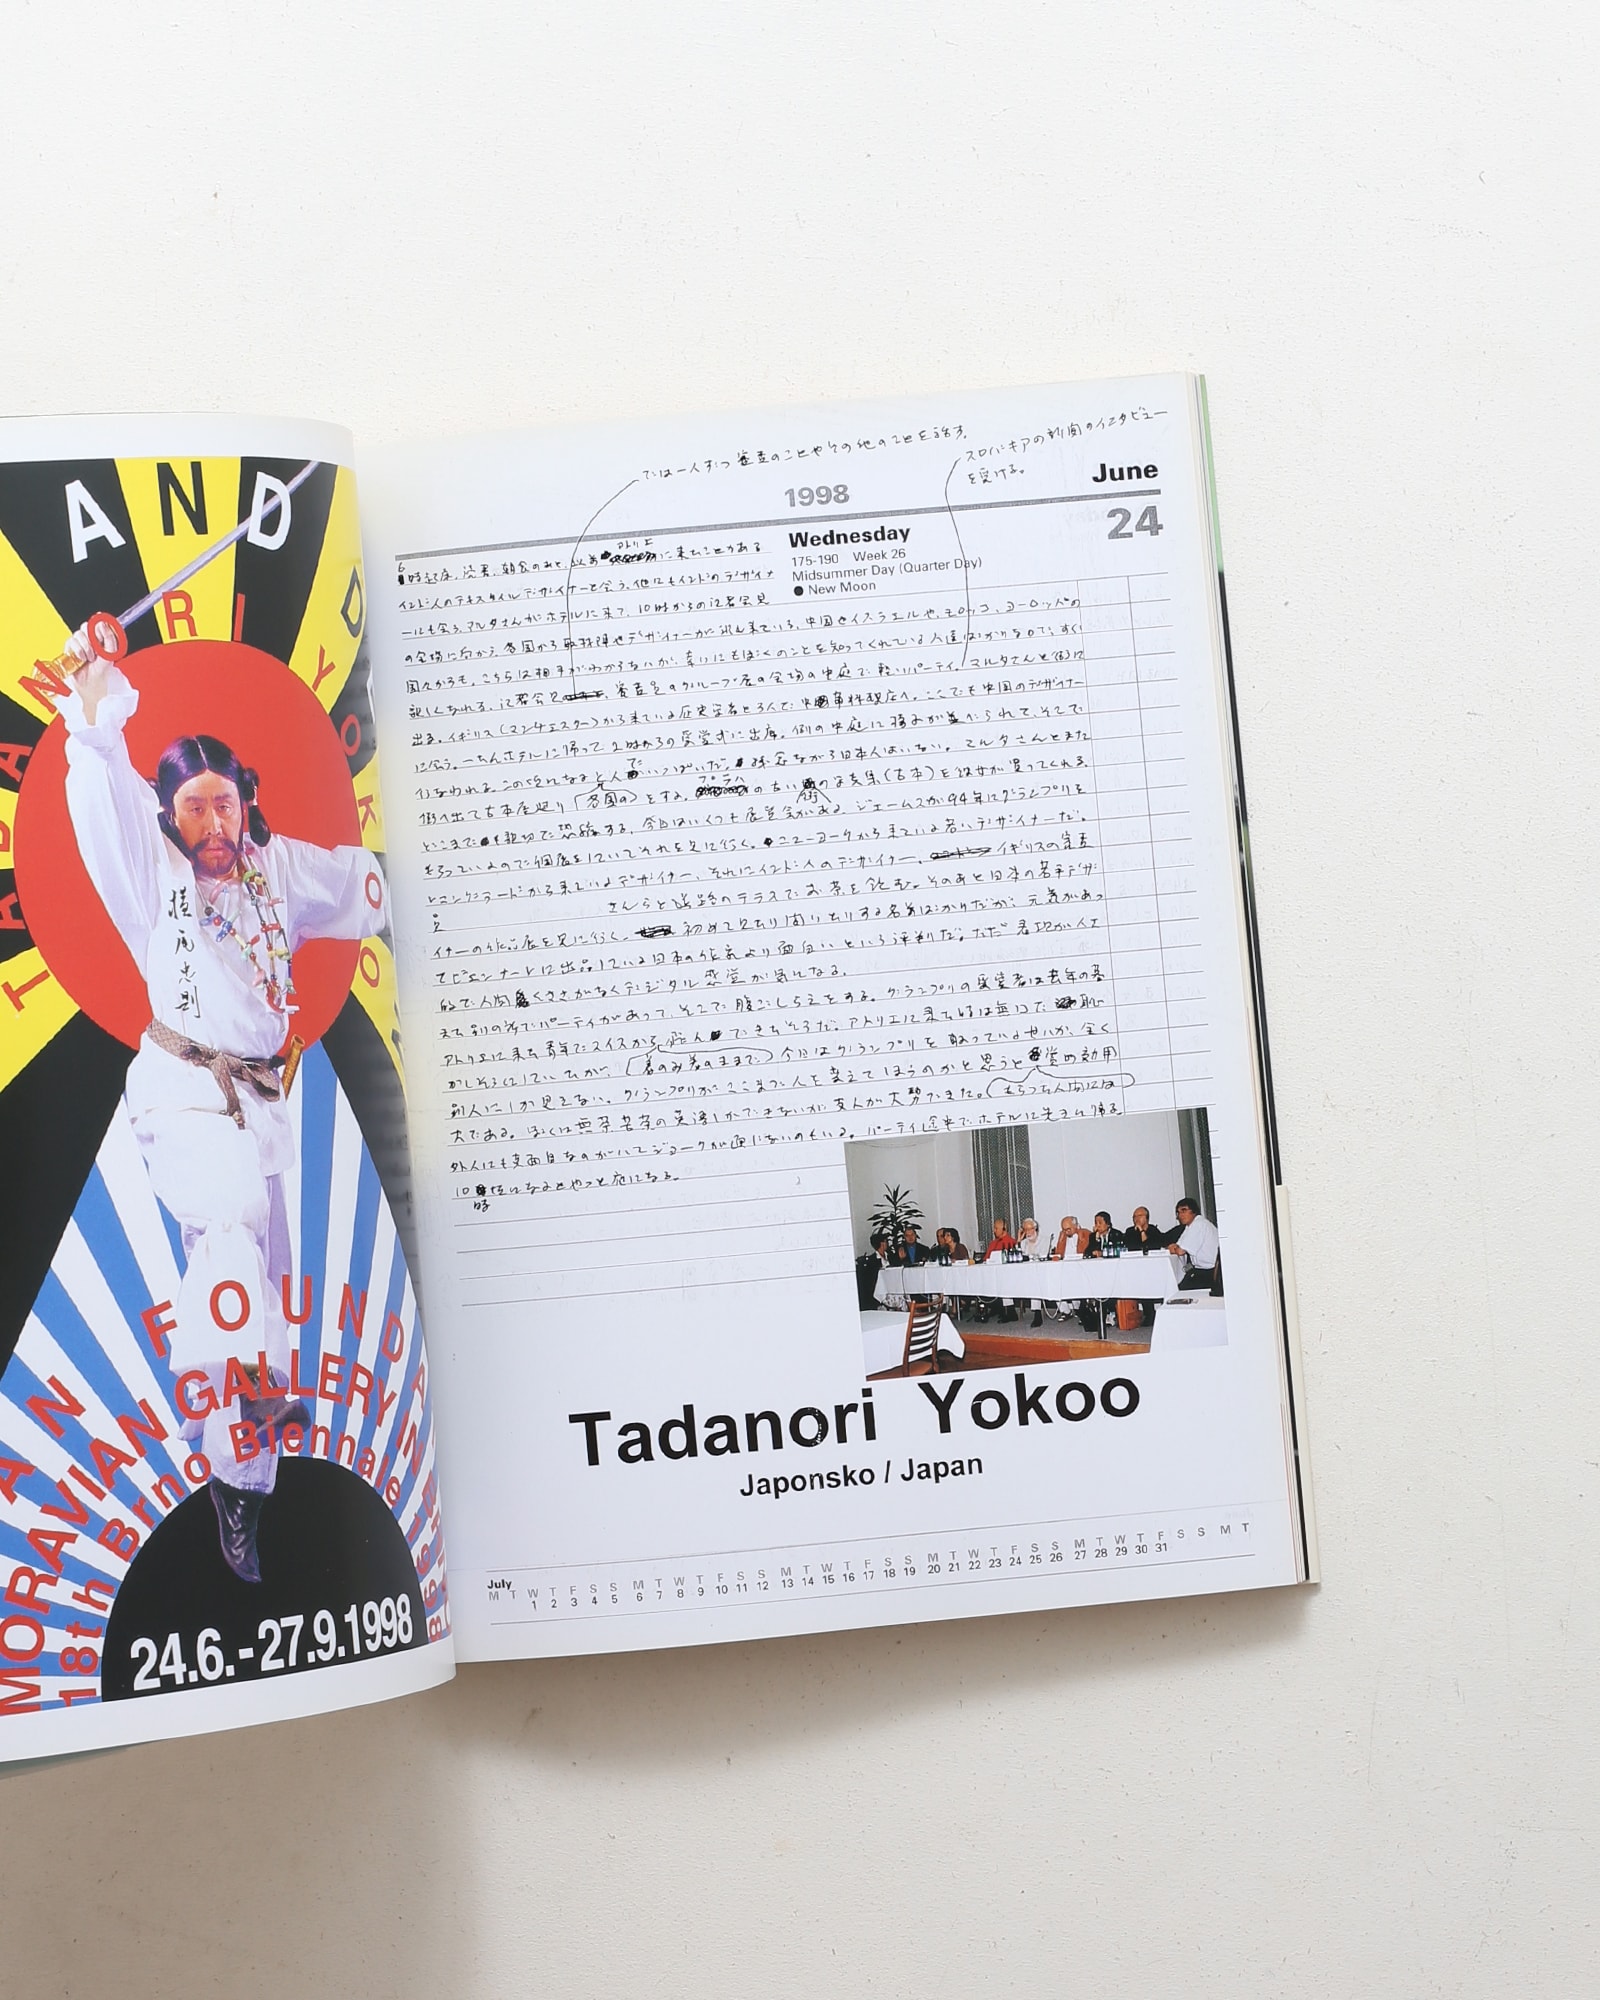 AND
TADANORI YOKOO
横尾忠則
FOUNDA
MORAVIAN GALLERY IN
18th Brno Biennale
24.6.-27.9.1998
では一人ずつ審査のことやその他のことを話す。
スロバキアの新聞のインタビュー
を受ける。
1998
June
24
Wednesday
175-190 Week 26
Midsummer Day (Quarter Day)
● New Moon
アトリエ
6時起床、読書、朝食のあと、以前に来たことがある
インド人のテキスタイルデザイナーと会う。他にもインドのデザイナ
ーにも会う。マルタさんがホテルに来て、10時からの記者会見
の会場に向かう。各国から取材陣やデザイナーが沢山来ている。中国やイスラエルや、モロッコ、ヨーロッパの
国々からも。こちらは相手がわからないが、幸いにもぼくのことを知ってくれている人達ばかりなので、すぐ
親しくなれる。記者会見、審査員のグループ展の会場の中庭で軽いパーティ。マルタさんと街に
出る。イギリス(マンチェスター)から来ている歴史学者と3人で中国料理店へ。ここでも中国のデザイナー
に会う。一たんホテルに帰って2時からの受賞式に出席。例の中庭に椅子が並べられて、そこで
行なわれる。人でいっぱいだ。残念ながら日本人はいない。マルタさんとまた
街へ出て古本屋廻りをする。プラハの古い街の写真集(古本)を彼女が買ってくれる。
各国の
どこまでも親切で恐縮する。今日はいくつか展覧会がある。ジェームスが94年にグランプリを
もらっているので個展をしていてそれを見に行く。ニューヨークから来ている若いデザイナーだ。
から来ているデザイナー、それにインド人のデザイナー、イギリスの審査
員
さんらと道路のテラスでお茶を飲む。そのあと日本の若手デザ
イナーの作品展を見に行く。初めて見たり聞いたりする名前ばかりだが、元気があっ
てビエンナーレに出品している日本の作家より面白いという評判だ。ただ表現が人工
的で人間くささがなくデジタル感覚が気になる。
また別の所でパーティがあって、そこで腹ごしらえをする。グランプリの受賞者は去年の暮
アトリエに来た青年でスイスから飛んできたそうだ。アトリエに来た時は無口で恥
かしそうにしていたが、(着のみ着のままで)今日はグランプリを取っているせいか、全く
別人にしか見えない。グランプリがここまで人を変えてしまうのかと思うと賞の効用
大である。ぼくは無茶苦茶の英語しかできないが友人が大勢できた。(もちろん人間には
外人にも真面目なのがいてジョークが通じないのもいる。パーティ途中でホテルに先に帰る。
10時頃になるとやっと夜になる。
Tadanori Yokoo
Japonsko / Japan
July
M T W T F S S M T W T F S S M T W T F S S M T W T F S S M T W T F S S M T
1 2 3 4 5 6 7 8 9 10 11 12 13 14 15 16 17 18 19 20 21 22 23 24 25 26 27 28 29 30 31